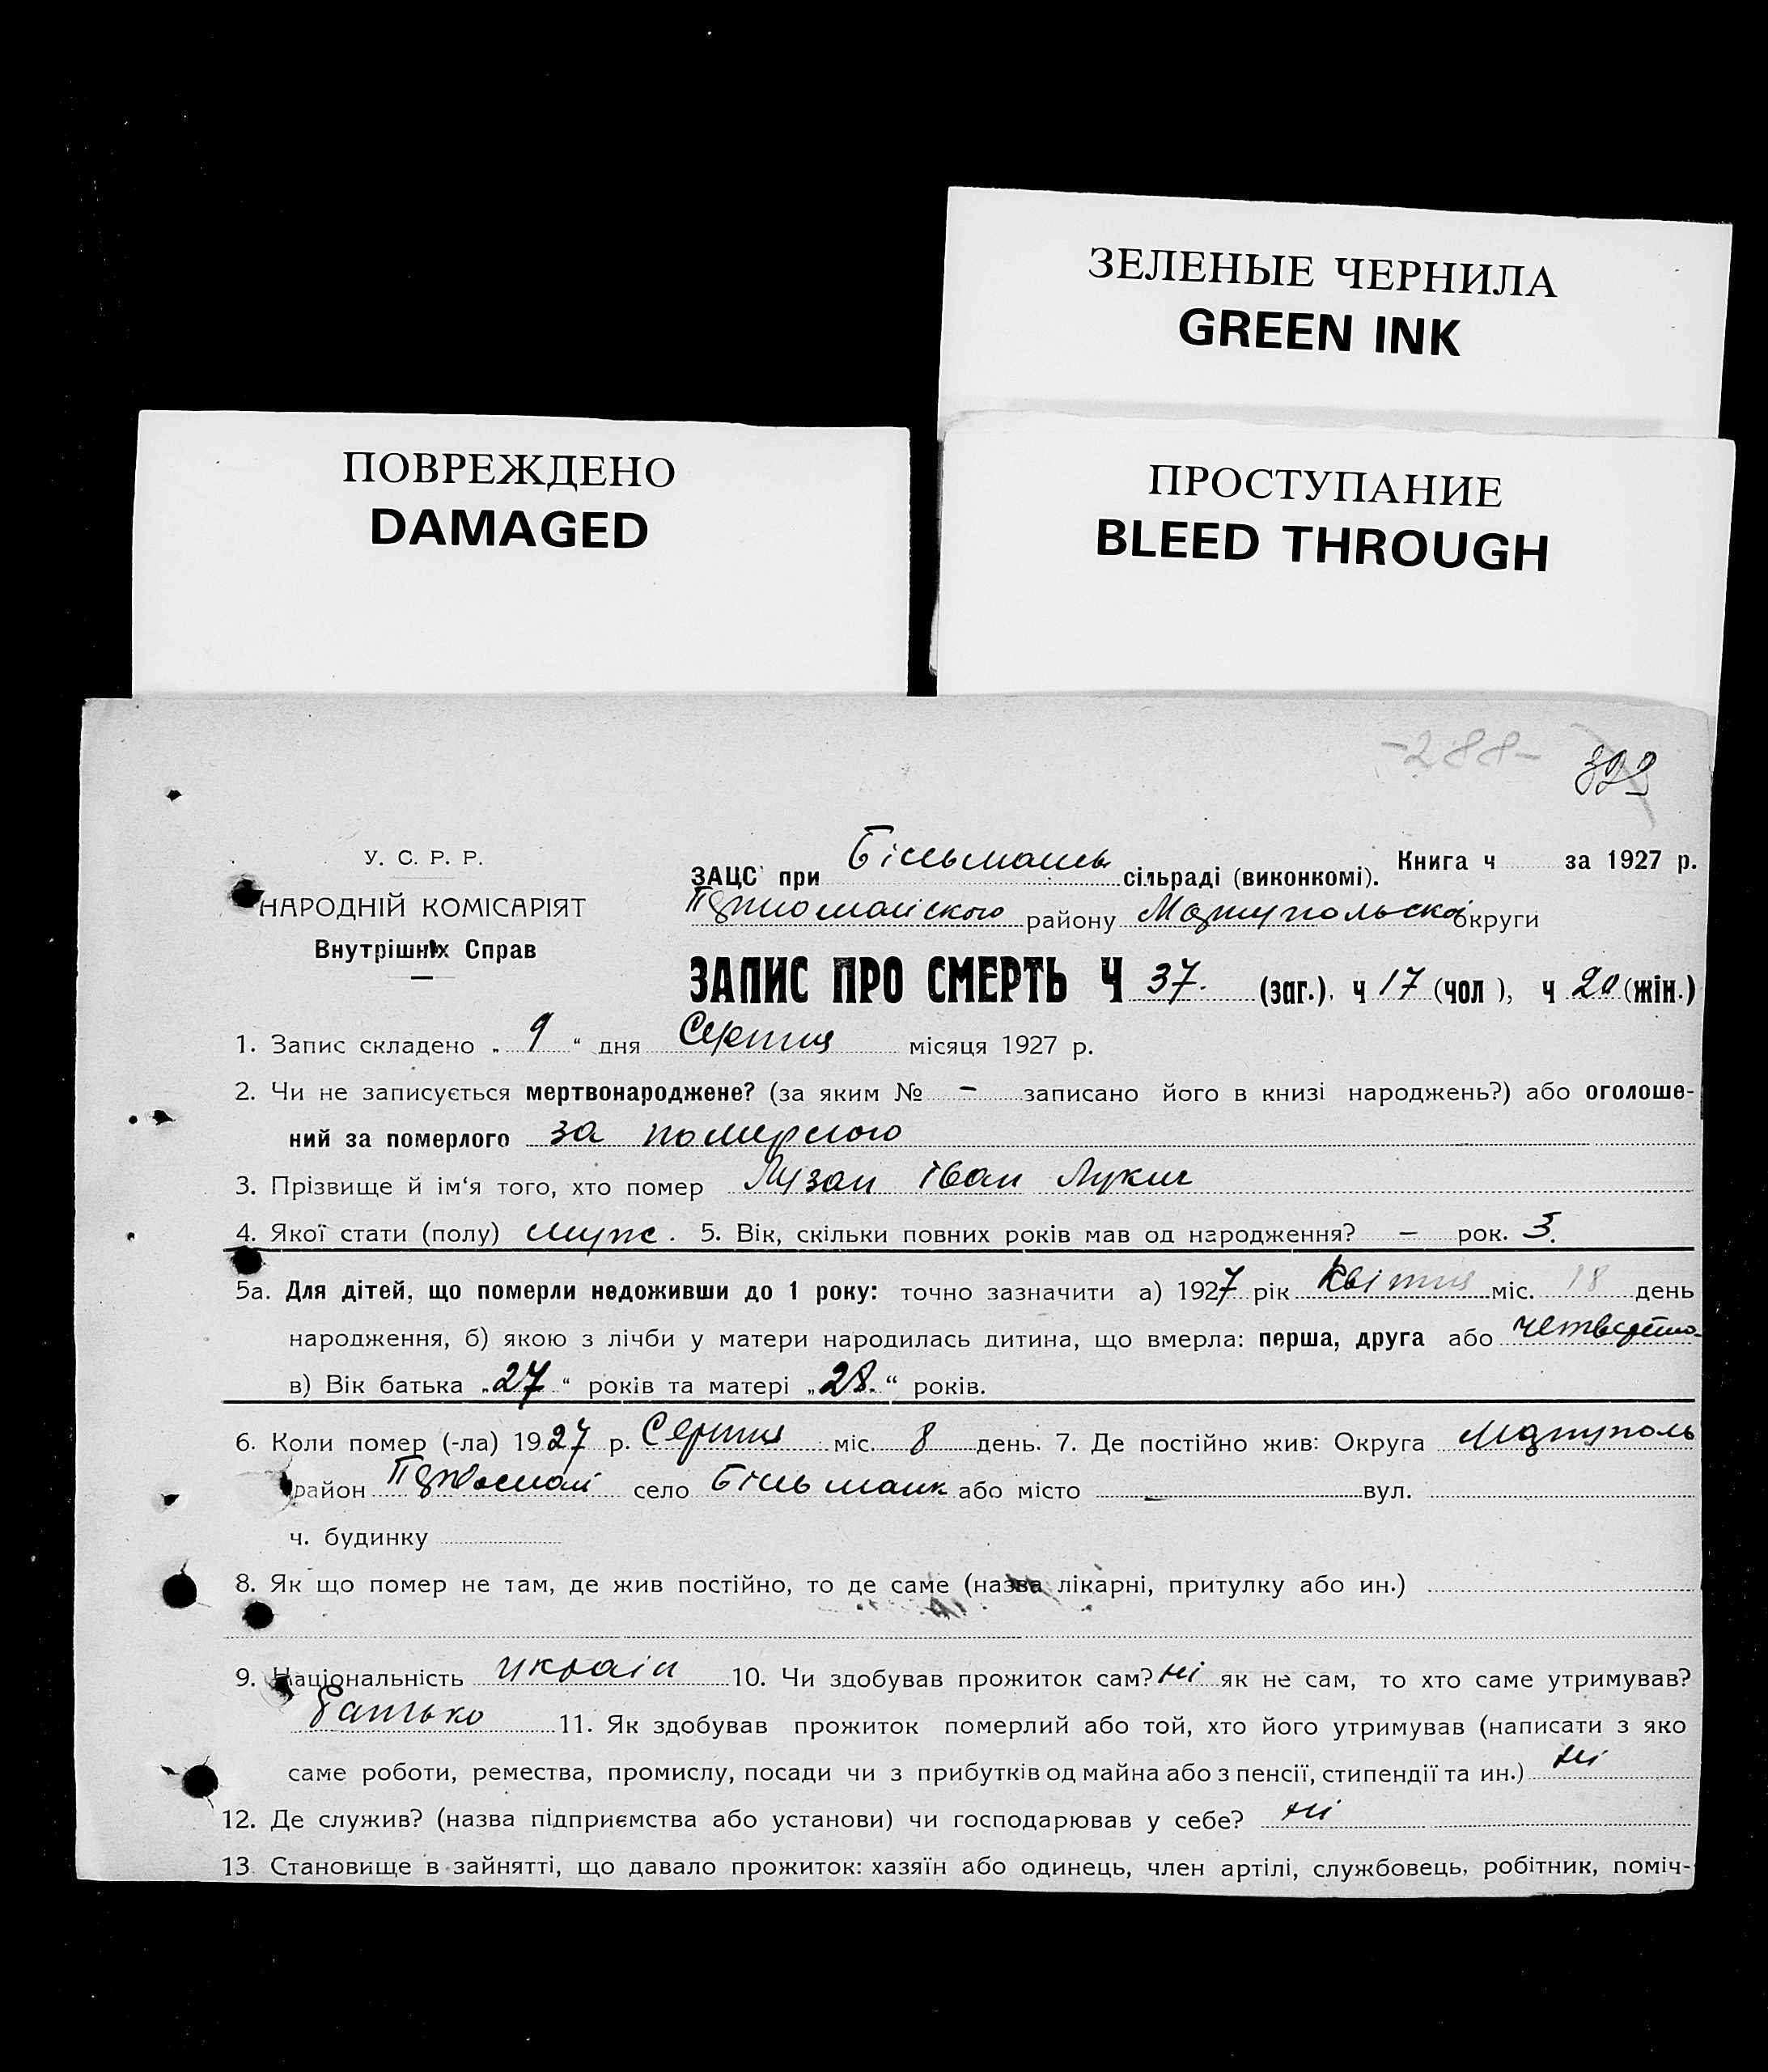 ЗЕЛЕНЫЕ ЧЕРНИЛА
GREEN INK
ПОВРЕЖДЕНО
DAMAGED
ПРОСТУПАНИЕ
BLEED THROUGH
-288-
У. С. Р. Р.
НАРОДНІЙ КОМІСАРІЯТ
Внутрішніх Справ
Книга ч за 1927 р.
ЗАЦС при Більманк сільраді (виконкомі).
району Маріупольской округи
ЗАПИС ПРО СМЕРТЬ Ч 37. (заг.), ч 17 (чол), ч 20 (жін.)
1. Запис складено „ 9 “ дня Серпня місяця 1927 р.
2. Чи не записується мертвонароджене? (за яким № — записано його в книзі народжень?) або оголоше-
ний за померлого за померлого
3. Прізвище й ім‘я того, хто помер Лузан Іван Лукич
4. Якої стати (полу) муж. 5. Вік, скільки повних років мав од народження? — рок. 3.
5а. Для дітей, що померли недоживши до 1 року: точно зазначити а) 1927 рік Квітня міс. 18 день
народження, б) якою з лічби у матери народилась дитина, що вмерла: перша, друга або
в) Вік батька „27“ років та матері „28.“ років.
6. Коли помер (-ла) 1927 р. Серпня міс. 8 день. 7. Де постійно жив: Округа Маріуполь
район село Більманк або місто — вул.
ч. будинку
8. Як що помер не там, де жив постійно, то де саме (назва лікарні, притулку або ин.)
9. Національність україн 10. Чи здобував прожиток сам? ні як не сам, то хто саме утримував?
батько 11. Як здобував прожиток померлий або той, хто його утримував (написати з яко
саме роботи, ремества, промислу, посади чи з прибутків од майна або з пенсії, стипендії та ин.) ні
12. Де служив? (назва підприємства або установи) чи господарював у себе? ні
13 Становище в зайнятті, що давало прожиток: хазяїн або одинець, член артілі, службовець, робітник, поміч-